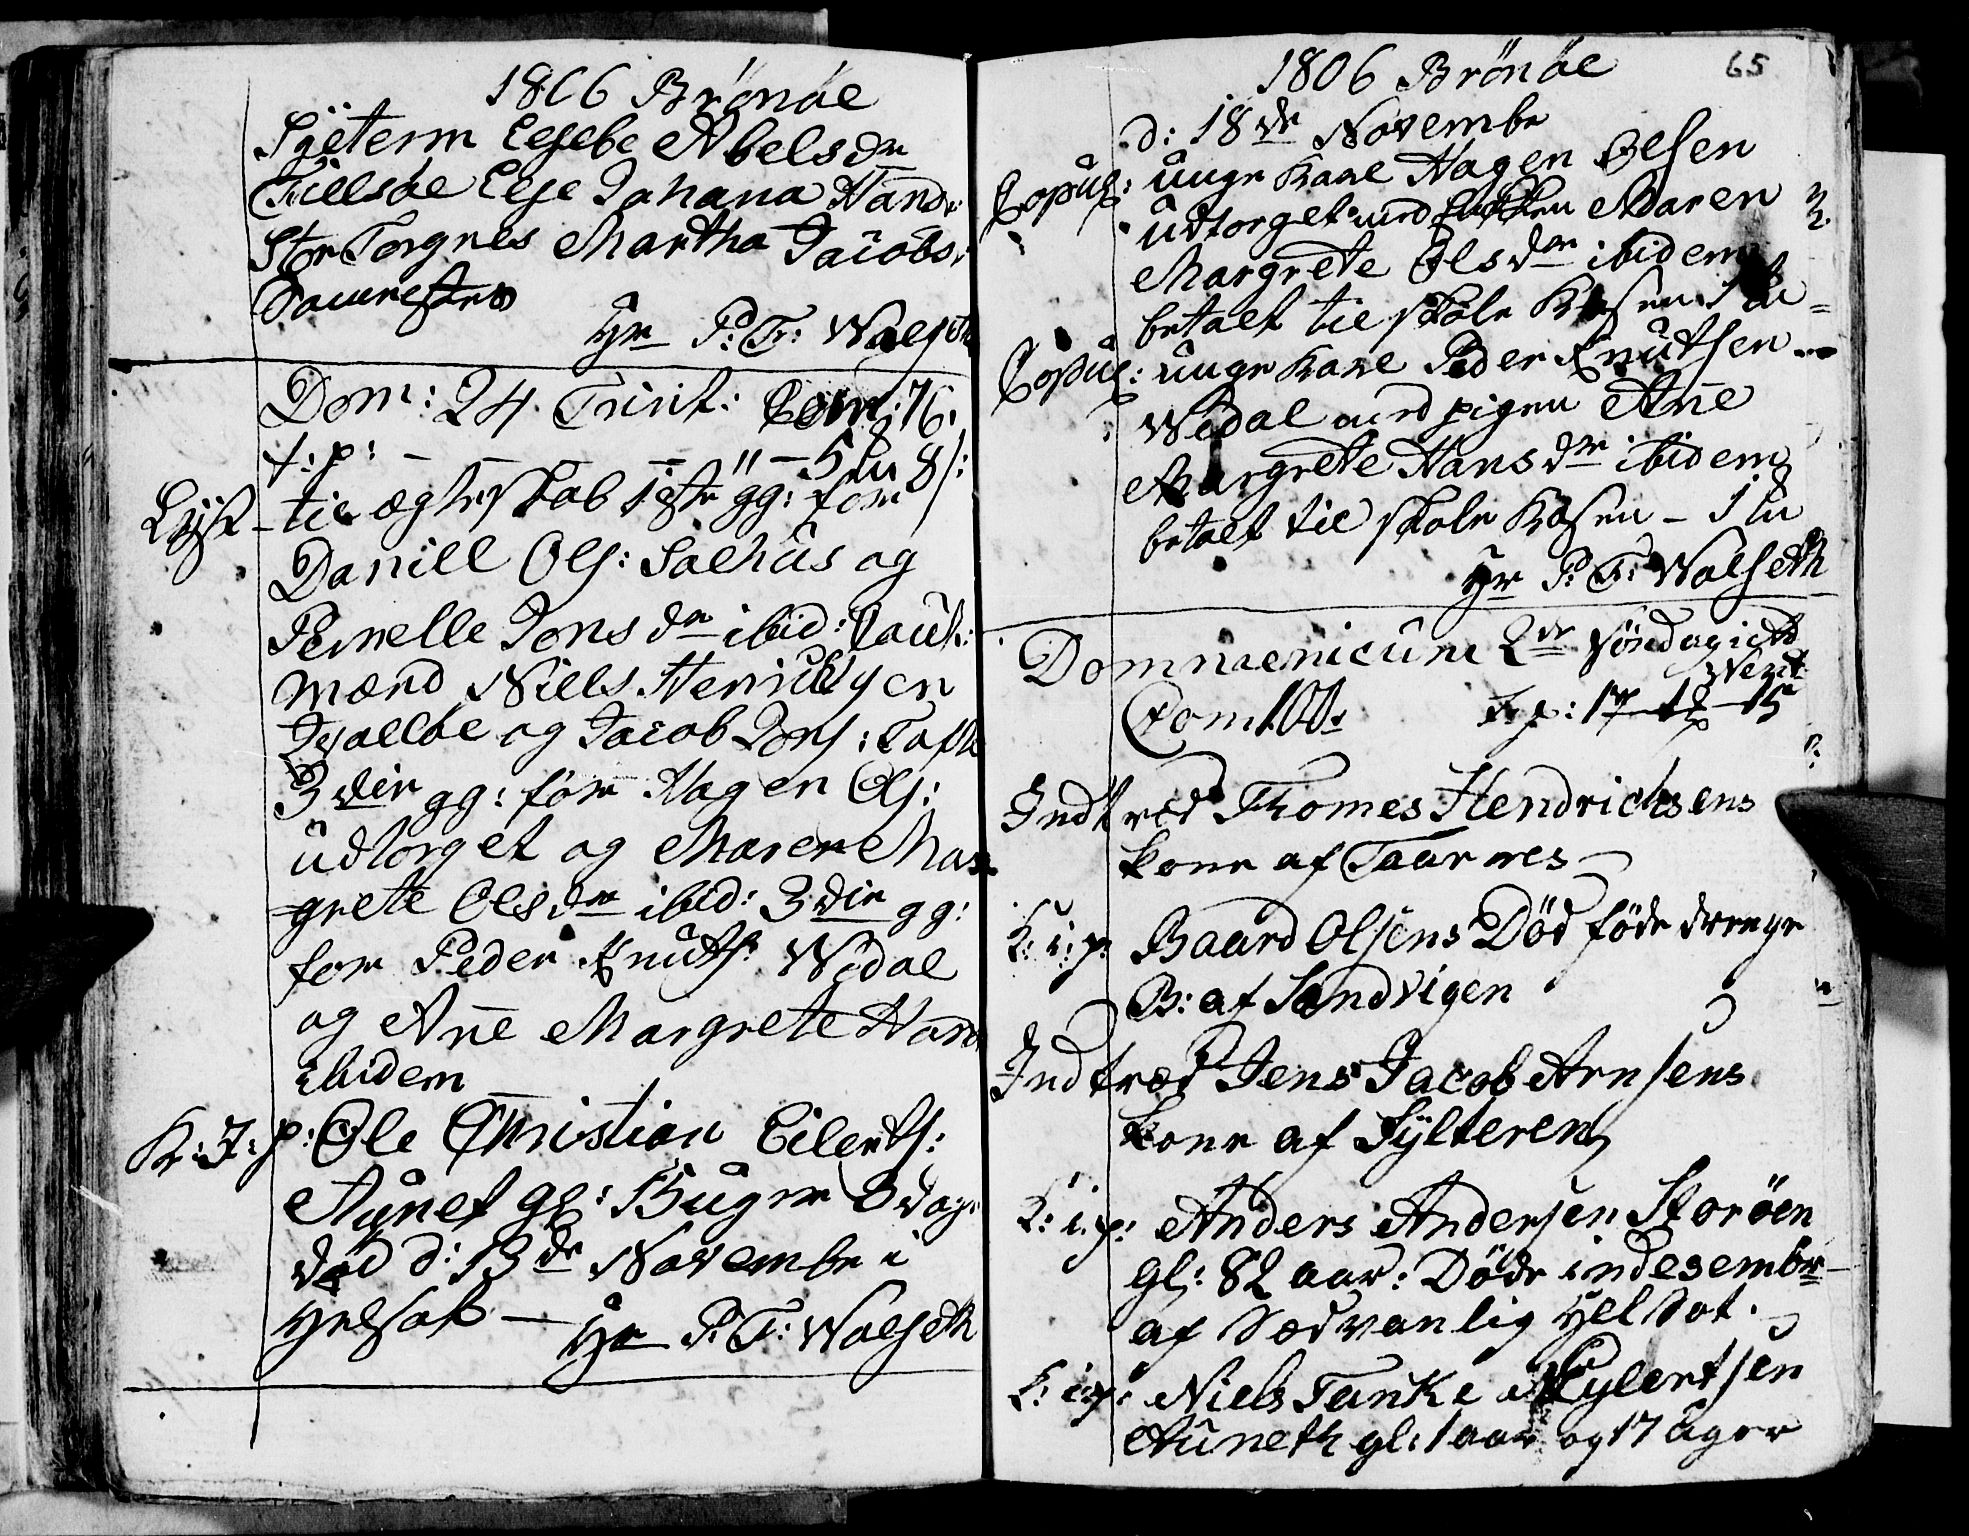 1806 Brönöe
Elsebe Abelsdr
Tillsöe Else Johana Hansdr
StorTorgnes Martha Jacobs:
Hr P: T: Walseth
Dom: 24 Trinit: Com: 76.
f: p: — — — " — 5 8 s:
Lÿst – til ægteskab 1ste gg: for
Daniell Ols: Salhus og
Pernelle Jonsdr ibid:
mænd Niels Henrichsen
og Jacob Jons: Toft
3die gg: for Hagen Ols:
udtorget og Maren Mar
grete Olsdr ibid: 3die gg:
for Peder Knuts: Wedal
og Ane Margrete Hans
ibidem
K: I: p: Ole Christian Eilerts:
Aunet gl: 3 dage
död d: 13de Novembr i
Helsot — Hr P: T: Walseth
1806 Brönöe 65
d: 18de Novembr
Copul: unge Karl Hagen Olsen
udtorget med Maren
Margrete Olsdr ibidem
betalt til skole Kasen 1
Copul: unge Karl Peder Knutsen
Wedal med pigen Ane
Margrete Hansdr ibidem
betalt til skole Kasen – 1
Hr P: T: Walseth
Domnaenicum 2de Söndag i Ad
Vent
Com 100. f: p: 17
Indtræd Thomes Hendrichsens
kone af Taarnes
K: i: p: Baard Olsens Död föde drenge
B: af Sandvigen
Indtræd Jens Jacob Arnsens
kone af Sylteren
K: i: p: Anders Andersen Storöen
gl: 82 aar: Döde in desembr
af Sædvanlig Helsot.
K: i: p: Niels Tanke Eylertsen
Auneth gl: 1 aar og 17 uger